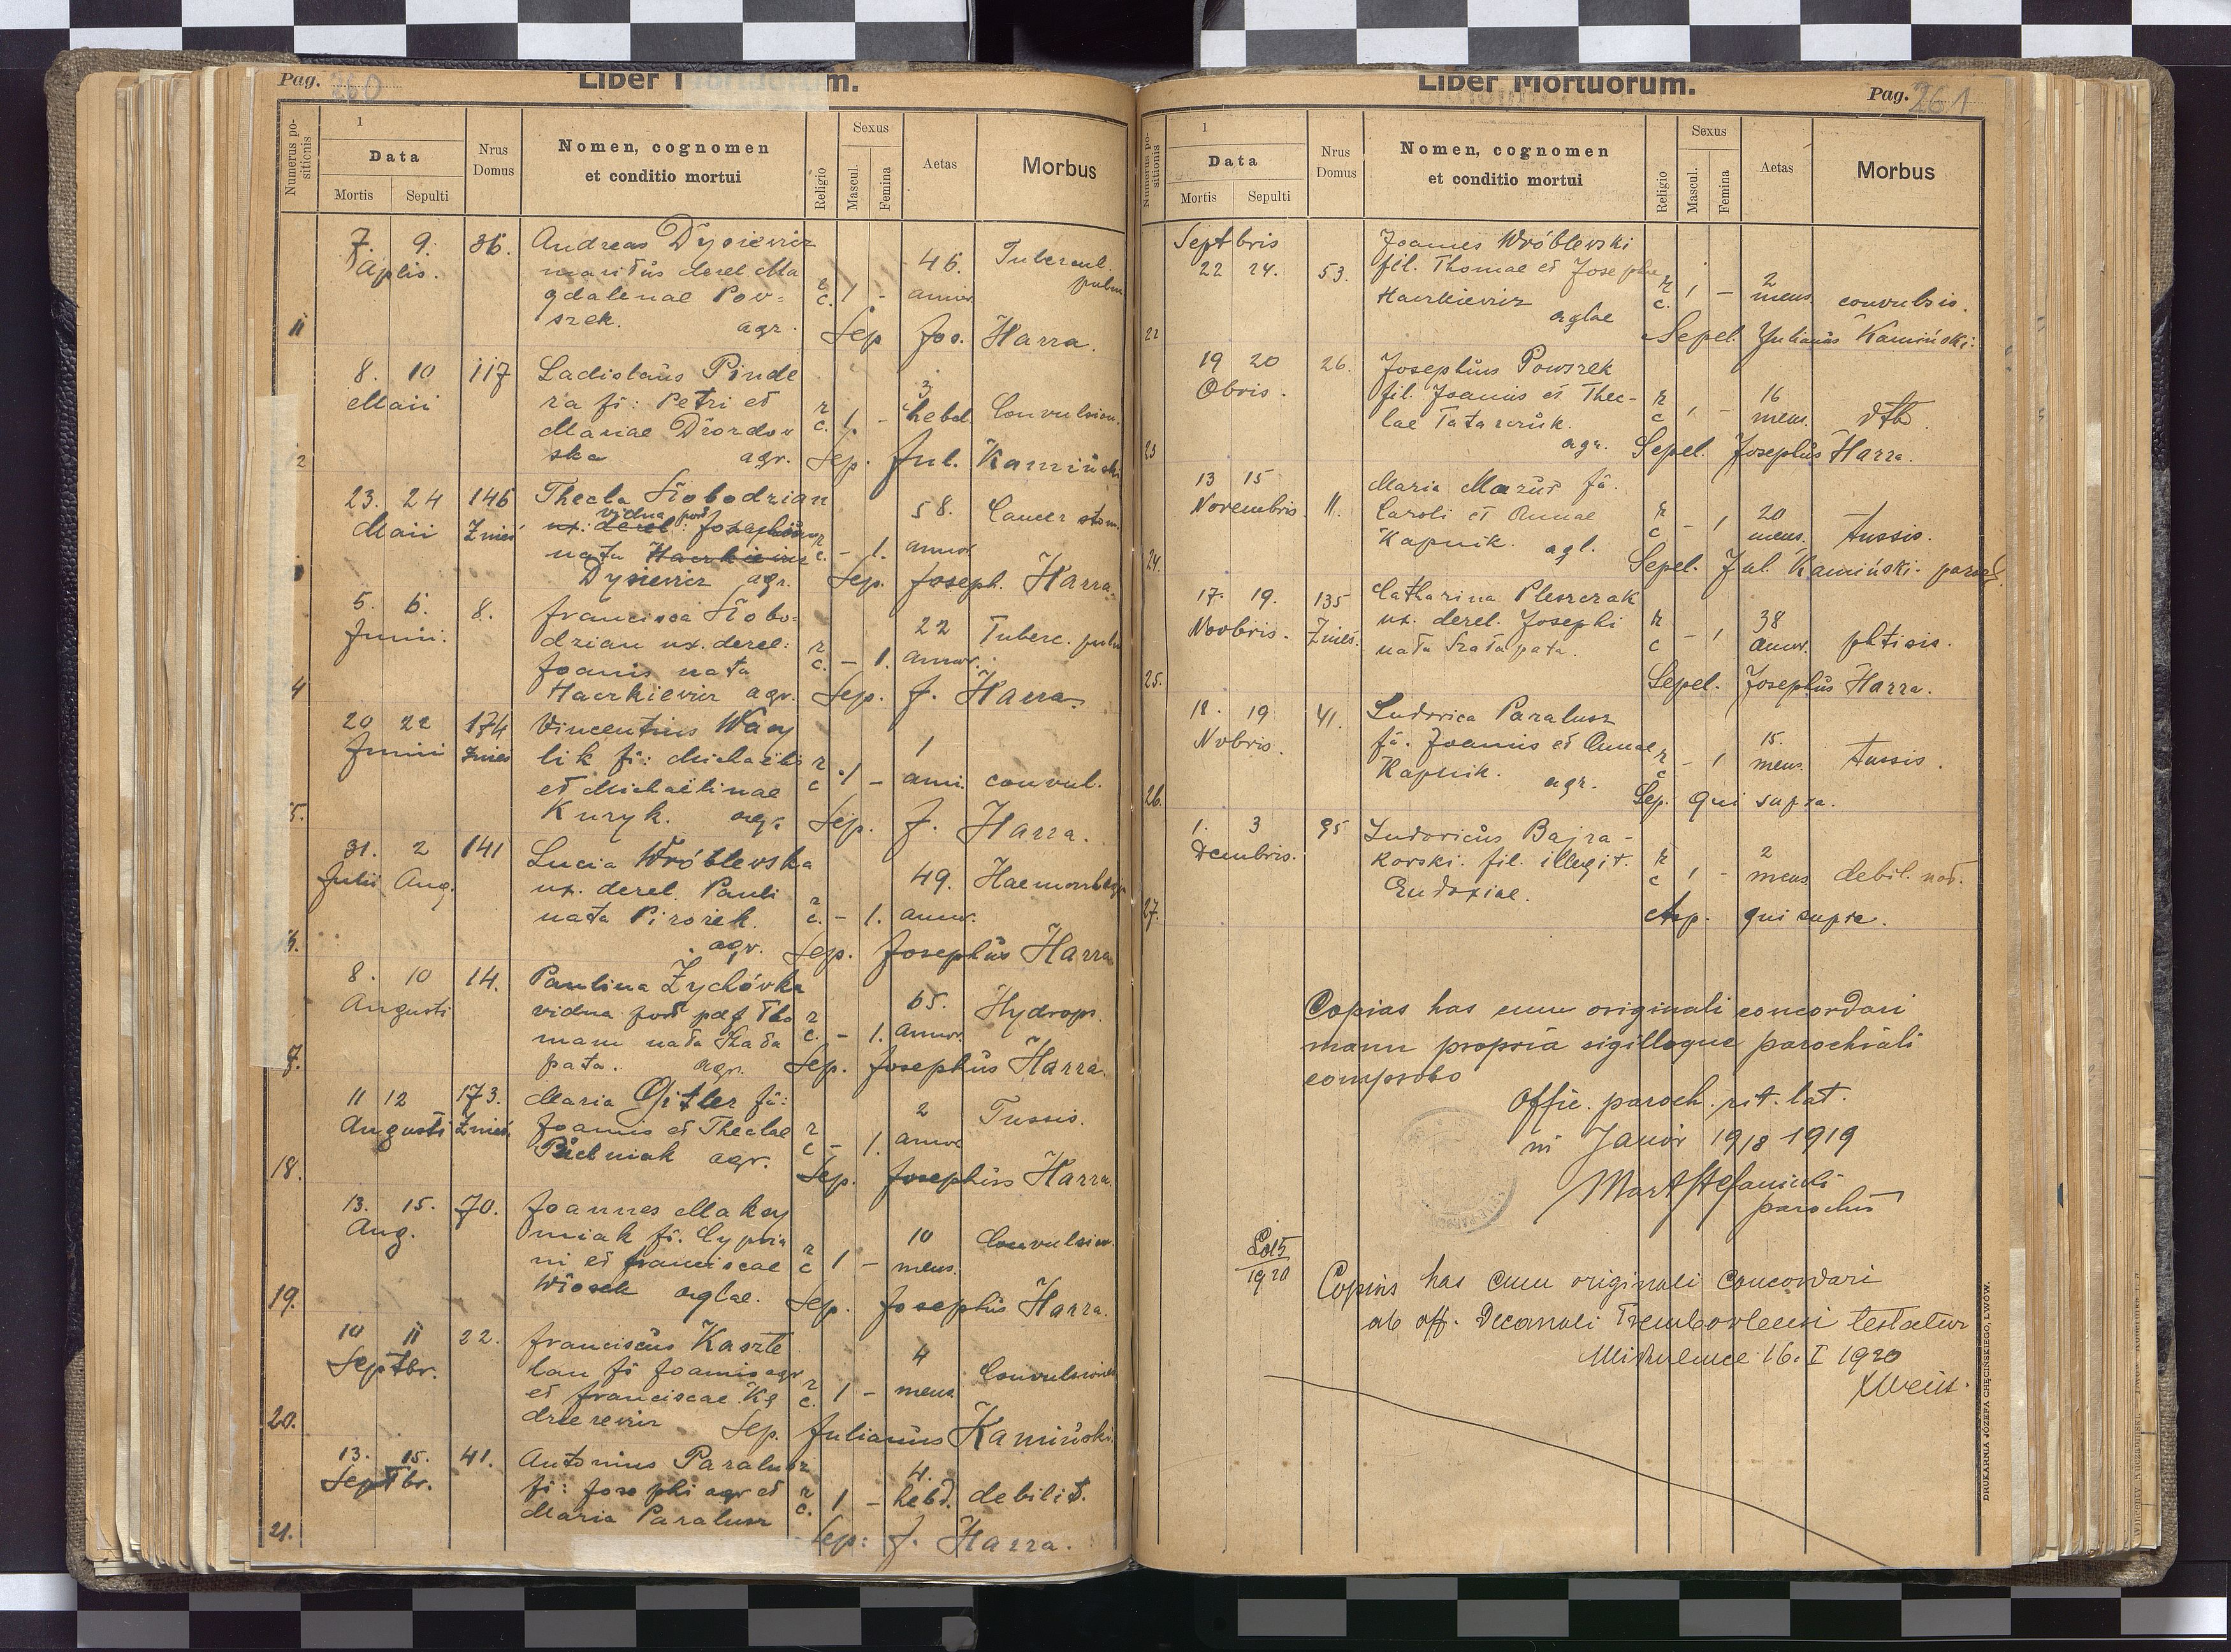 Pag. 260
Liber Mortuorum.
Numerus positionis
1
Data
Mortis Sepulti
Nrus Domus
Nomen, cognomen
et conditio mortui
Religio
Sexus
Mascul.
Femina
Aetas
Morbus
7. 9. 36. Andreas Dysiewicz
Aplis. maritus derel. Ma 46. Tubercul.
gdalenae Pow= r. c. 1 - annor. pulm.
szek. agr.
11 Sep. Jos. Harra.
8. 10 117 Ladislaus Pinde
Maii ra fi: Petri et 3
Mariae r. c. 1. - hebd. Convulsion.
ska agr.
2 Sep. Jul. Kamiński
23. 24 146 Thecla Słobodzian
Maii Znies. vidua post 58. Cancer stom.
ux. derel. Josephi
nata Haczkiewicz r. c. - 1. annor.
Dysiewicz agr. Sep. Joseph. Harra.
5. 6. 8. Francisca Słobo=
Junii. dzian ux. derel: 22 Tuberc. pulm
Joanis nata r. c. - 1. annor.
4 Haczkiewicz agr. Sep. J. Harra.
20 22 174 Vincentius Wasy
Junii Znies lik fi: Michaelis r 1
et Michaelinae c 1 - anni. convul.
5. Kuryk. agr. Sep. J. Harra.
31. 2 141 Lucia Wróblewska
Julii Aug. ux. derel. Pauli 49. Haemorrhagia
nata Pirożek. r. c. - 1. annor.
6. agr. Sep. Josephus Harra
8. 10 14. Paulina Zychówka
Augusti vidua post pdf Tho r 65. Hydrops.
mam nata Szata c. - 1. annor.
7. pata. agr. Sep. Josephus Harra.
11 12 173. Maria Gitler fi:
Augusti Znies. Joannis et Theclae r 2 Tussis.
Pielniak agr. c - 1. annor
18. Sep. Josephus Harra.
13. 15. 70. Joannes Maksy
Aug. miak fi. Cypria 10 Convulsion.
ni et Franciscae r c 1 - mens.
19. Wiosek aglae. Sep. Josephus Harra.
10 11 22. Franciscus Kaszte
Septbr. lan fi Joannis agr 4 Convulsiones
et Franciscae Kę r c. 1 - mens
20. dzierewicz Sep. Julianus Kamiński.
13. 15. 41. Antonius Paralusz
Septbr. fi: Josephi agr et r 4.
Maria Paralusz c. 1 - hebd. debilit.
21. Sep: J. Harra.
Liber Mortuorum.
Pag. 261
Numerus positionis
1
Data
Mortis Sepulti
Nrus Domus
Nomen, cognomen
et conditio mortui
Religio
Sexus
Mascul.
Femina
Aetas
Morbus
Septbris Joannes Wróblewski
22 24. 53. fil. Thomae et Josephae 2
Haczkiewicz r. c. 1 - mens. convulsis.
aglae
22 Sepel. Julianus Kamiński.
19 20 26. Josephus Powszek
Obris. fil. Joannis et Thec- r 16
lae Tatarczuk. c 1 - mens.
23 agr. Sepel. Josephus Harra.
13 15 Maria Mazur fi.
Novembris. 11. Caroli et Annae r 20
Kapnik. agl. c - 1 mens. tussis.
24. Sepel. Jul. Kamiński.
17. 19. 135 Catharina Pleszczak
Novbris. Znies. ux. derel. Josephi r 38
nata Szatapata. c - 1 annor. phtisis.
25. Sepel. Josephus Harra.
18. 19 41. Ludovica Paralusz
Nobris. fi. Joannis et Annae r 15.
Kapnik. agr. c - 1 mens. tussis.
26. Sep. qui supra.
1. 3 95 Ludovicus Bajra-
Dcembris. kowski. fil. illegit. r 2
Eudoxiae. c 1 - mens debil. nat.
27. Sep. qui supra.
Copias has cum originali concordari
manu propria sigilloque parochiali
comprobo
Offic. paroch. rit. lat.
in Janów 1918 1919
Mart Stefanicki
parochus
L 015
1920
Copias has cum originali Concordari
ab off. Decanali Trembovlensi testatur
Mikulence 16. I 1920
DRUKARNIA JÓZEFA CHĘCIŃSKIEGO, LWÓW.